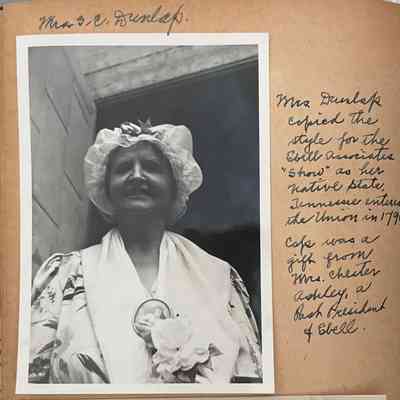 Mrs G. C. Dunlap.
Mrs Dunlap
copied the
style for the
Ebell Associates
"Show" as her
native State,
Tennessee
the Union in 179
Cap was a
gift from
Mrs. Chester
Ashley, a
Past President
of Ebell.